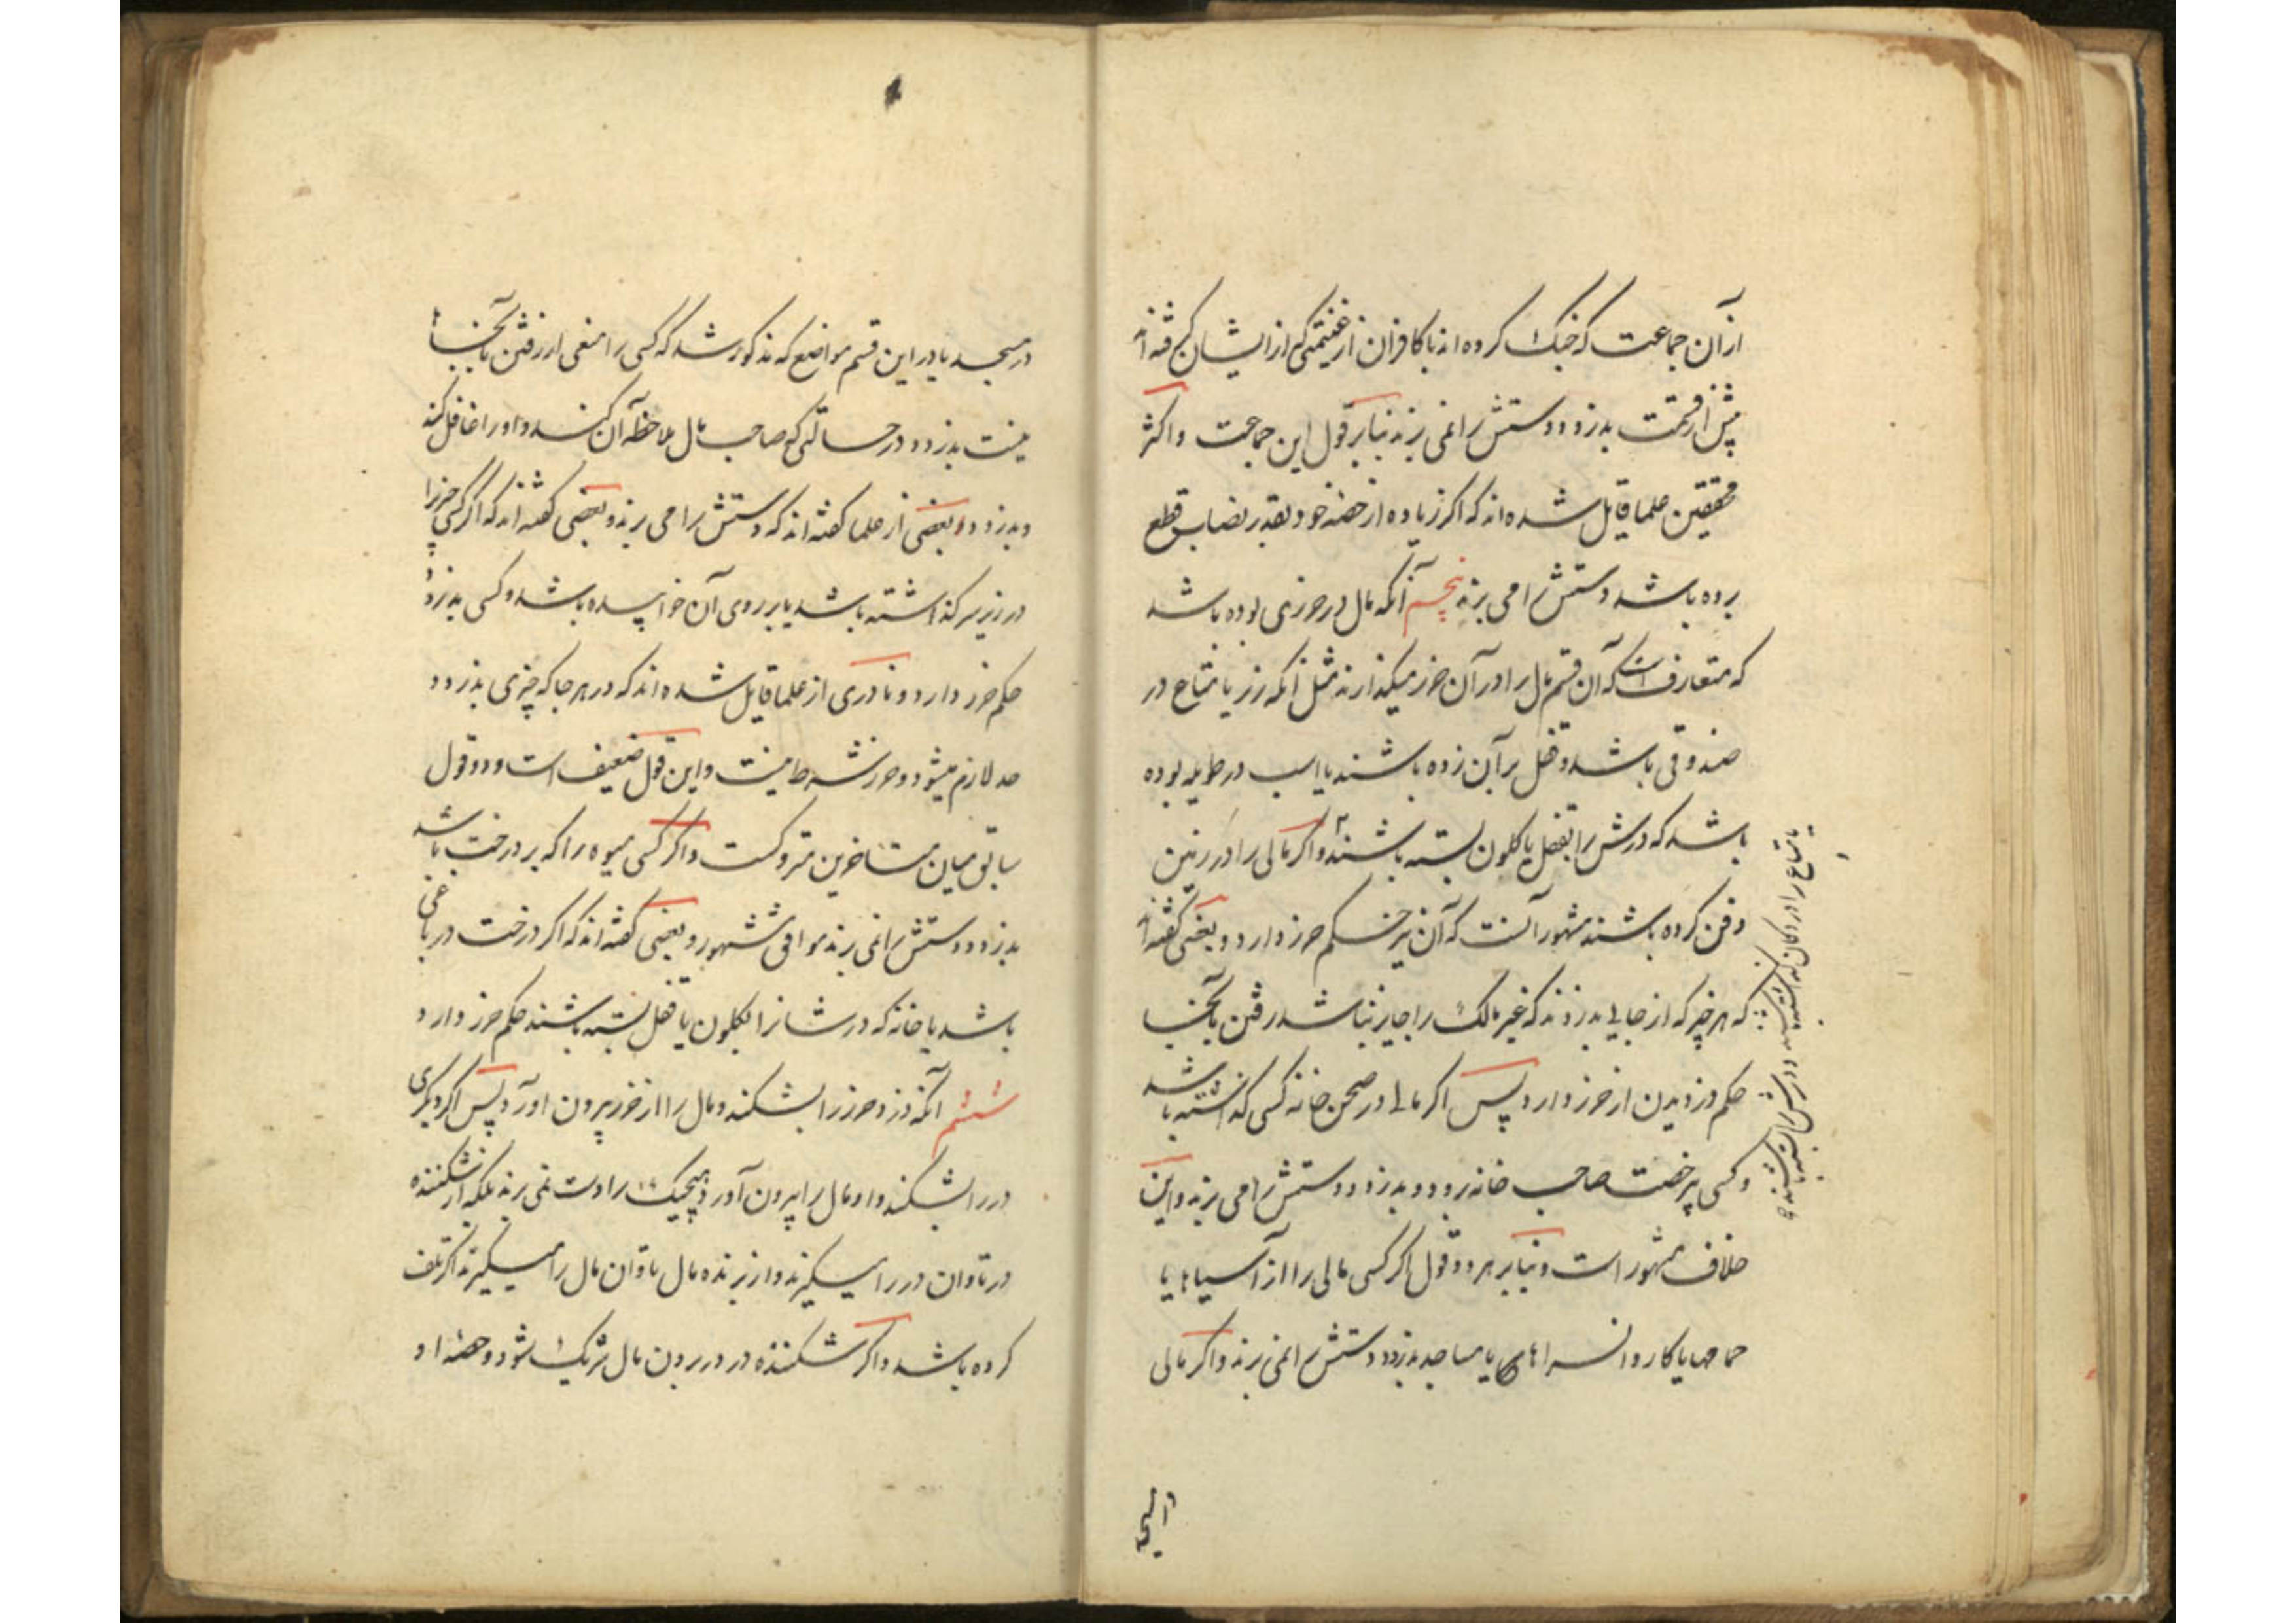 از آن جماعت که جنک کرده اند با کافران از غنیمتی که از ایشان گرفته اند
پیش از قسمت بدزدد دستش را نمی برند بنابر قول این جماعت و اکثر
محققین علما قایل شده اند که اگر زیاده از حصه خود بقدر نصاب قطع
برده باشد دستش را می برند پنجم آنکه مال در حرزی بوده باشد
که متعارفست که آن قسم مال را در آن حرز میگذارند مثل آنکه زر یا متاع در
صندوقی باشد و قفل بر آن زده باشند یا اسب در طویله بوده
باشد که درش را بقفل یا کلون بسته باشند و اگر مالی را در زمین
دفن کرده باشند مشهور آنست که آن نیز حکم حرز دارد و بعضی گفته اند
که هر چیز که از جایی بدزدند که غیر مالک را جایز نباشد رفتن بآنجا
حکم دزدیدن از حرز دارد پس اگر مالی در صحن خانه کسی گذاشته باشد
و کسی بی رخصت صاحب خانه برود و بدزدد دستش را می برند و این
خلاف مشهور است و بنابر هر دو قول اگر کسی مالی را از آسیاها یا
حمامها یا کاروانسراهای یا مساجد بدزدد دستش را نمی برند و اگر مالی
یا متاع را در دکان گذاشته باشند و درش را بسته باشند
در مسجد یا در این قسم مواضع که مذکور شد که کسی را منعی از رفتن بآنجا
نیست بدزدد در حالتی که صاحب مال ملاحظه آن کند و او را غافل کند
و بدزدد بعضی از علما گفته اند که دستش را می برند و بعضی گفته اند که اگر کسی چیزی را
در زیر سر گذاشته باشد یا بر روی آن خوابیده باشد و کسی بدزدد
حکم حرز دارد و نادری از علما قایل شده اند که در هر جا که چیزی بدزدد
حد لازم میشود و حرز شرط نیست و این قول ضعیف است و دو قول
سابق میان متاخرین متروکست و اگر کسی میوه را که بر درخت باشد
بدزدد دستش را نمی برند موافق مشهور و بعضی گفته اند که اگر درخت در باغی
باشد یا خانه که درشانرا بکلون یا قفل بسته باشند حکم حرز دارد
ششم آنکه دزد حرز را بشکند و مال را از حرز بیرون آورد پس اگر دیگری
در را بشکند و او مال را بیرون آورد هیچیک را دست نمی برند بلکه از شکننده
در تاوان در را میگیرند و از برنده مال تاوان مال را میگیرند اگر تلف
کرده باشد و اگر شکننده در در بردن مال شریک شود و حصه او